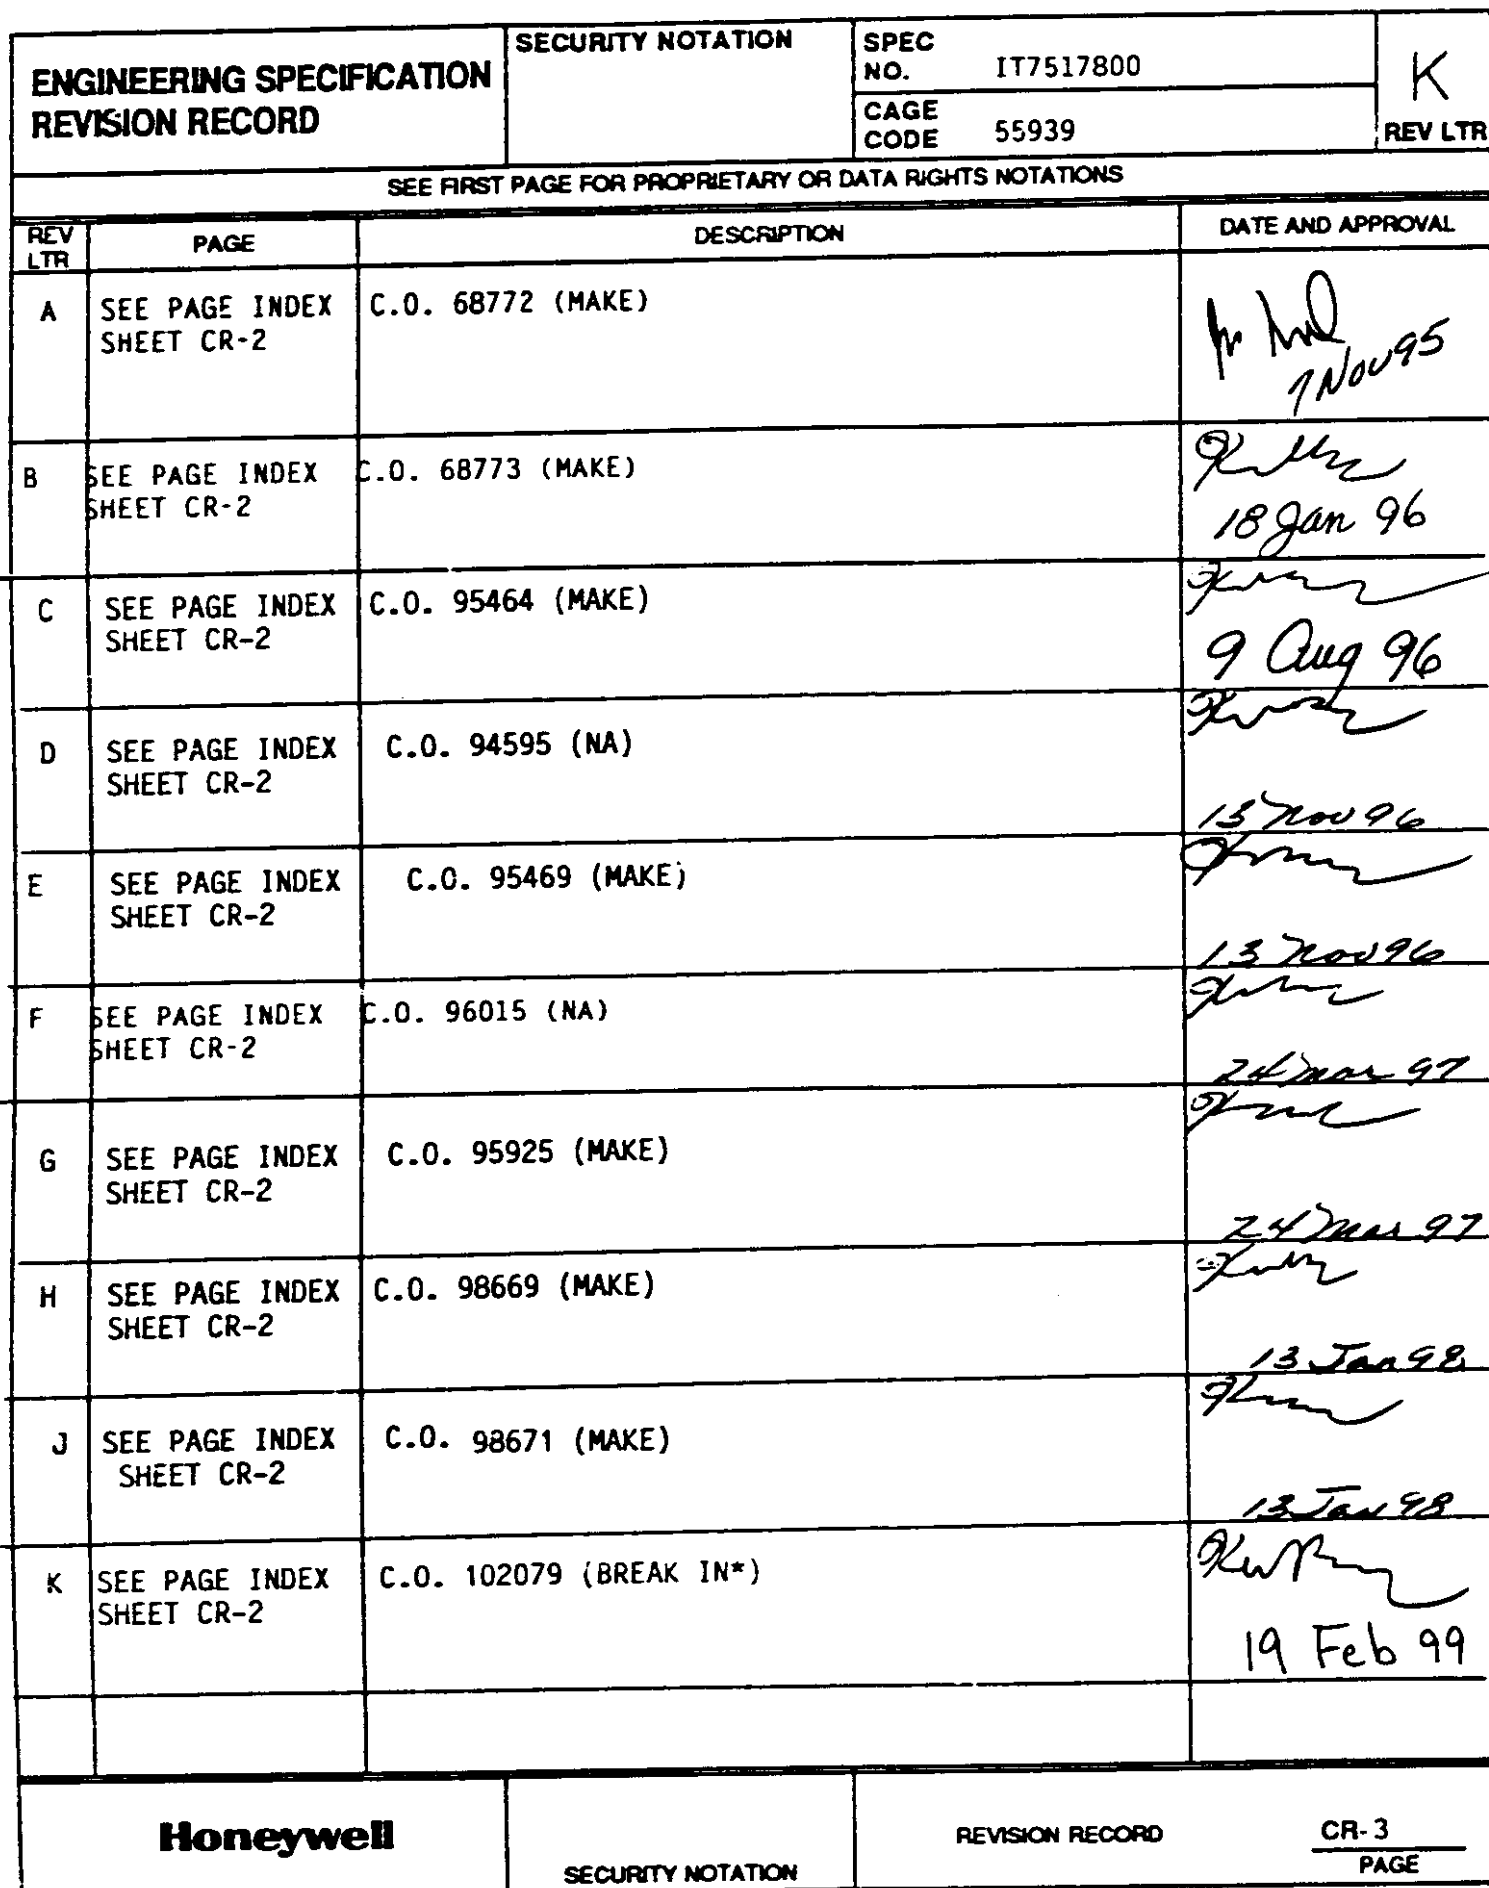 ENGINEERING SPECIFICATION
REVISION RECORD
SECURITY NOTATION
SPEC
NO. IT7517800
CAGE
CODE 55939
K
REV LTR
SEE FIRST PAGE FOR PROPRIETARY OR DATA RIGHTS NOTATIONS
REV
LTR
PAGE
DESCRIPTION
DATE AND APPROVAL
A
SEE PAGE INDEX
SHEET CR-2
C.O. 68772 (MAKE)
7 Nov 95
B
SEE PAGE INDEX
SHEET CR-2
C.O. 68773 (MAKE)
18 Jan 96
C
SEE PAGE INDEX
SHEET CR-2
C.O. 95464 (MAKE)
9 Aug 96
D
SEE PAGE INDEX
SHEET CR-2
C.O. 94595 (NA)
13 Nov 96
E
SEE PAGE INDEX
SHEET CR-2
C.O. 95469 (MAKE)
13 Nov 96
F
SEE PAGE INDEX
SHEET CR-2
C.O. 96015 (NA)
24 Mar 97
G
SEE PAGE INDEX
SHEET CR-2
C.O. 95925 (MAKE)
24 Mar 97
H
SEE PAGE INDEX
SHEET CR-2
C.O. 98669 (MAKE)
13 Jan 98
J
SEE PAGE INDEX
SHEET CR-2
C.O. 98671 (MAKE)
13 Jan 98
K
SEE PAGE INDEX
SHEET CR-2
C.O. 102079 (BREAK IN*)
19 Feb 99
Honeywell
SECURITY NOTATION
REVISION RECORD
CR-3
PAGE